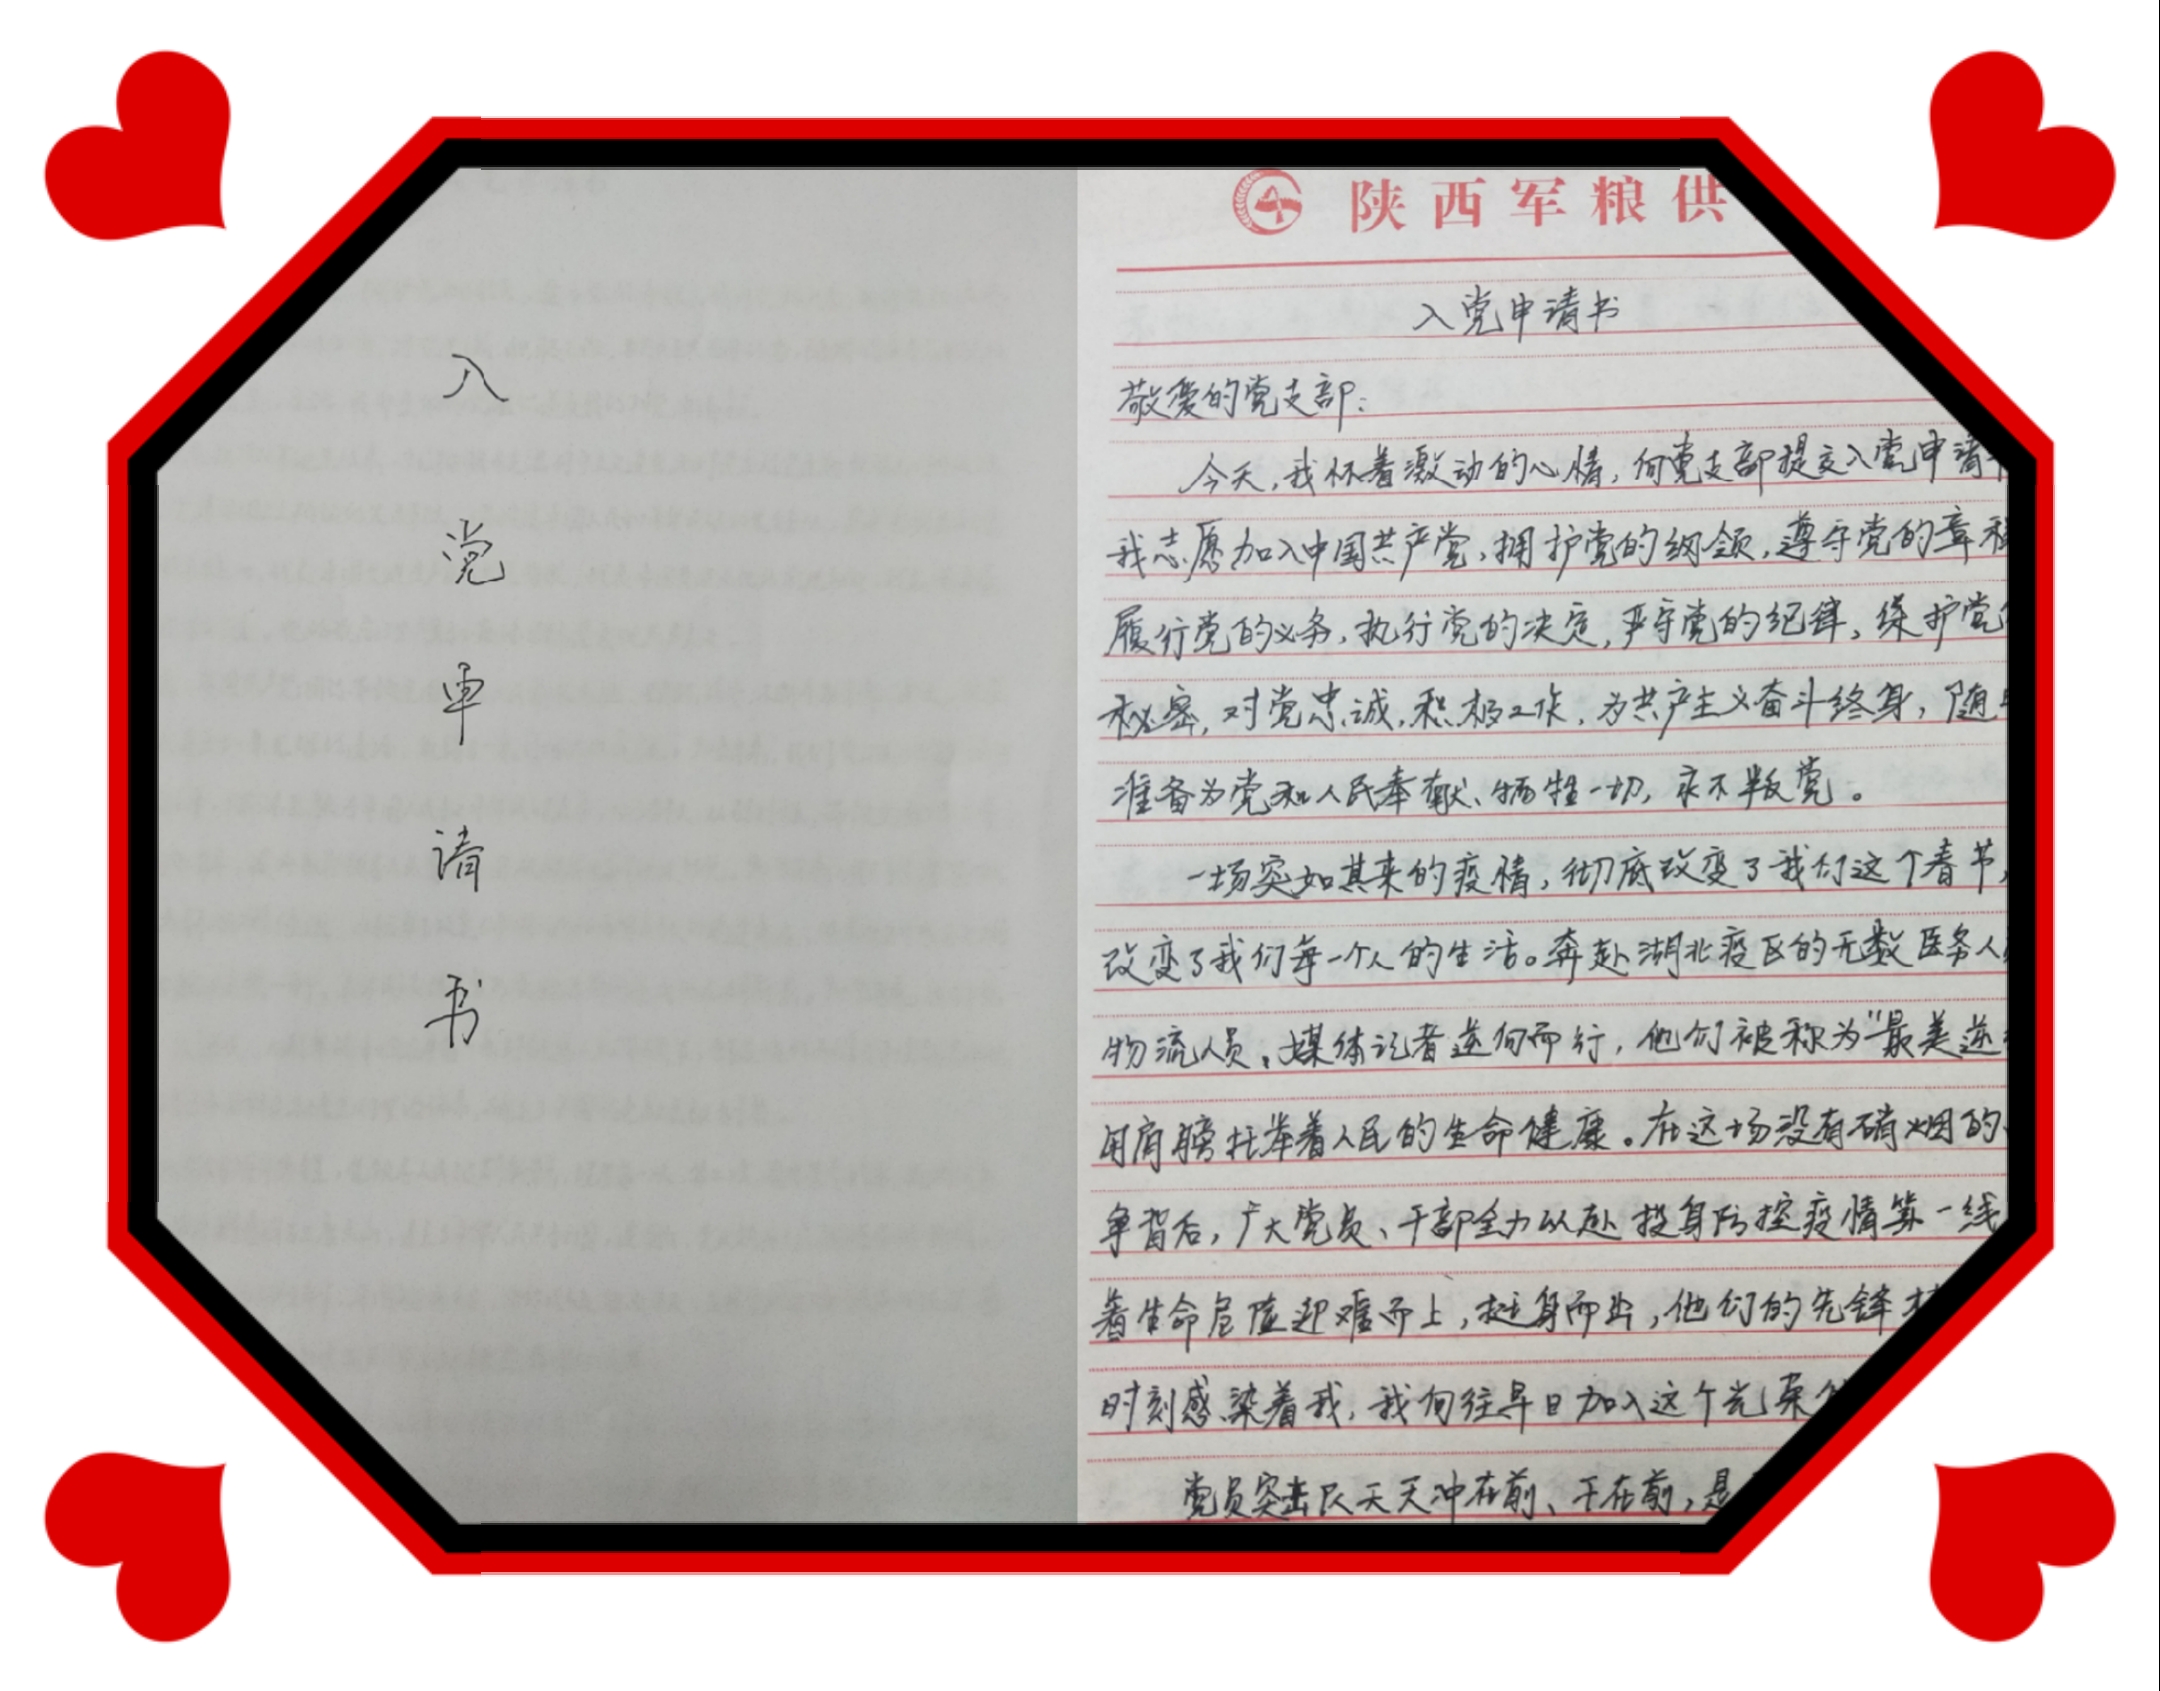 入
党
申
请
书
陕西军粮供
入党申请书
敬爱的党支部:
今天,我怀着激动的心情,向党支部提交入党申请
我志愿加入中国共产党,拥护党的纲领,遵守党的章程
履行党的义务,执行党的决定,严守党的纪律,保护党
秘密,对党忠诚,积极工作,为共产主义奋斗终身,随
准备为党和人民奉献、牺牲一切,永不叛党。
一场突如其来的疫情,彻底改变了我们这个春节,
改变了我们每一个人的生活。奔赴湖北疫区的无数医务人
物流人员、媒体记者逆向而行,他们被称为“最美逆
用肩膀托举着人民的生命健康。在这场没有硝烟的
争背后,广大党员、干部全力以赴投身防控疫情第一线
着生命危险迎难而上,挺身而出,他们的先锋
时刻感染着我,我向往早日加入这个光荣
党员突击队天天冲在前、干在前,是